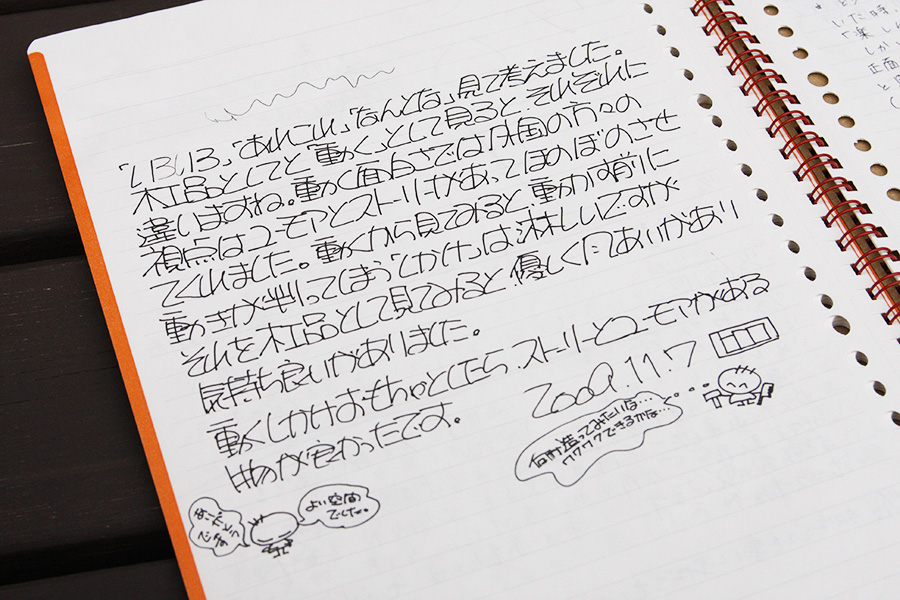 「いろいろ」「あれこれ」「なんとな」見て考えました。
木工品としてと「動く」として見ると、それぞれに
違いますね。動く面白さでは外国の方々の
視点はユーモアとストーリーがあってほのぼのさせ
てくれました。動くから見てみると、動かす前に
動きが判ってしまう「しかけ」は淋しいですが
それを木工品として見てみると、優しく円あいがあり
気持ち良いがありました。
動くしかけおもちゃとしたら、ストーリーとユーモアがある
ものが良かったです。
2009.11.7
何か造ってみたいな…
ワクワクできるかな…
よい空間
でした。
ありがとう
です
いた時
「楽し
しかい
正面
と